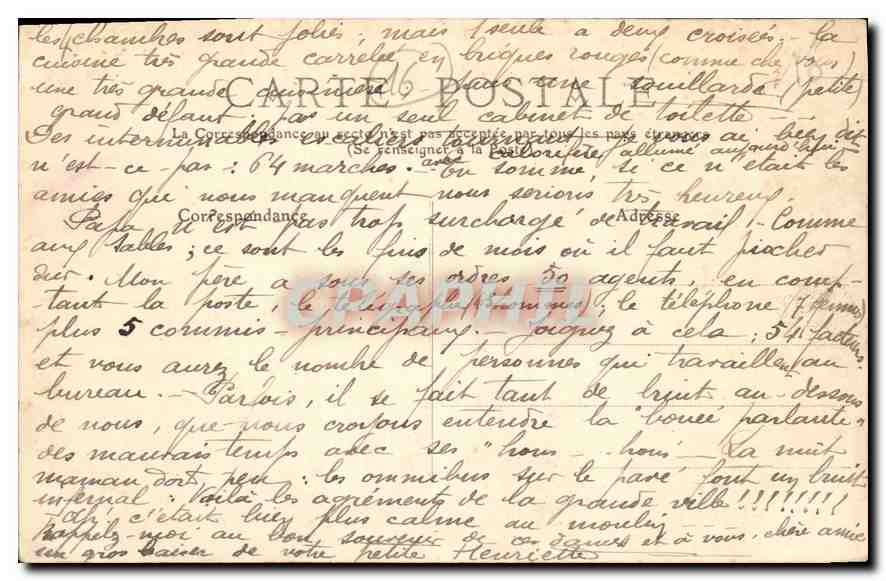 les (chambres sont jolies; mais 1 seule a deux croisées. - La
cuisine très grande carrelée en briques rouges (comme chez vous)
CARTE POSTALE
une très grande - puis une souillarde (petite)
16
grand défaut, pas un seul cabinet de toilette -
La Correspondance au recto n'est pas acceptée par tous les pays étrangers
(Se renseigner à la Poste)
Des interminables escaliers tournants je vous ai bien dit
calorifère allumé aujourd'hui
n'est-ce-pas: 64 marches. avec En somme, si ce n'était les
amies qui nous manquent nous serions très heureux.
Correspondance
Adresse
Papa n'est pas trop surchargé de travail. - Comme
aux Sables; ce sont les fins de mois où il faut piocher
dur. Mon père a sous ses ordres 50 agents, en comp-
-tant la poste, le télégraphe hommes), le téléphone (7 femmes)
CPARHI
plus 5 commis-principaux. - Joignez à cela: 54 facteurs.
et vous aurez le nombre de personnes qui travaillent au
bureau. - Parfois, il se fait tant de bruit au-dessous
de nous, que nous croyons entendre la "bouée parlante"
des mauvais temps avec ses "hous - hous" - La nuit
maman dort peu: les ommibus sur le pavé font un bruit
infernal: voilà les agréments de la grande ville!!!!!!!!
Ah! c'était bien plus calme au moulin -
Rappelez-moi au bon souvenir de ces dames et à vous, chère amie
un gros baiser de votre petite Henriette